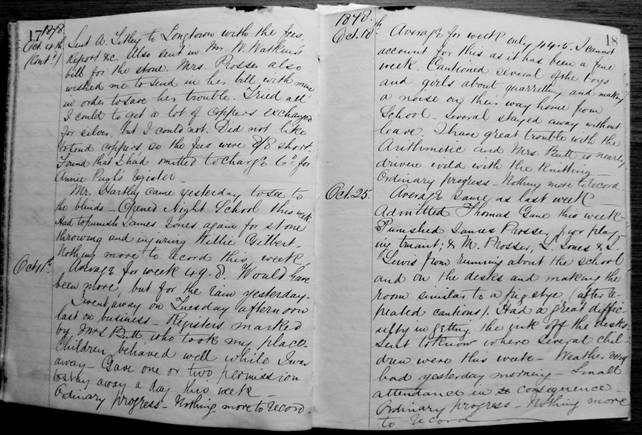 17
1878.
Oct. 4th. Sent A. Titley to Longtown with the fees,
(Cont.d) report &c. Also sent in Mr. W. Watkins's
bill for the stone. Mrs. Prosser also
wished me to send in her bill with mine
in order to save her trouble. Tried all
I could to get a lot of coppers exchanged
for silver, but I could not. Did not like
to send coppers so the fees were 2/8 short.
Found that I had omitted to charge 6d for
Annie Pugh's
Mr. Hartley came yesterday to see to
the blinds. Opened Night School this week
Had to punish James Jones again for stone
throwing and injuring Nellie Gilbert.
Nothing more to record this week.
Oct 11th. Average for week 49.8. Would have
been more but for the rain yesterday.
I went away on Tuesday afternoon
last on business. Registers marked
by Mrs Butt who took my place.
Children behaved well while I was
away. Gave one or two permission
to stay away a day this week.
Ordinary progress. Nothing more to record
18
1878.
Oct. 18th. Average for week only 44.5. I cannot
account for this as it has been a fine
week. Cautioned several of the boys
and girls about quarrelling and making
a noise on their way home from
School. Several stayed away without
leave. I have great trouble with the
Arithmetic and Mrs. Butt is nearly
driven wild with the Knitting.
Ordinary progress. Nothing more to record
Oct. 25. Average same as last week.
Admitted Thomas Gane this week
Punished James Prosser for play-
ing truant; & M. Prosser, L. Jones & L.
Lewis for running about the school
and on the desks and making the
room similar to a pigstye (after re-
peated cautions). Had a great diffic-
ulty in getting the ink off the desks.
Sent to know where several chil-
dren were this week. Weather very
bad yesterday morning. Small
attendance in consequence.
Ordinary progress. Nothing more
to record